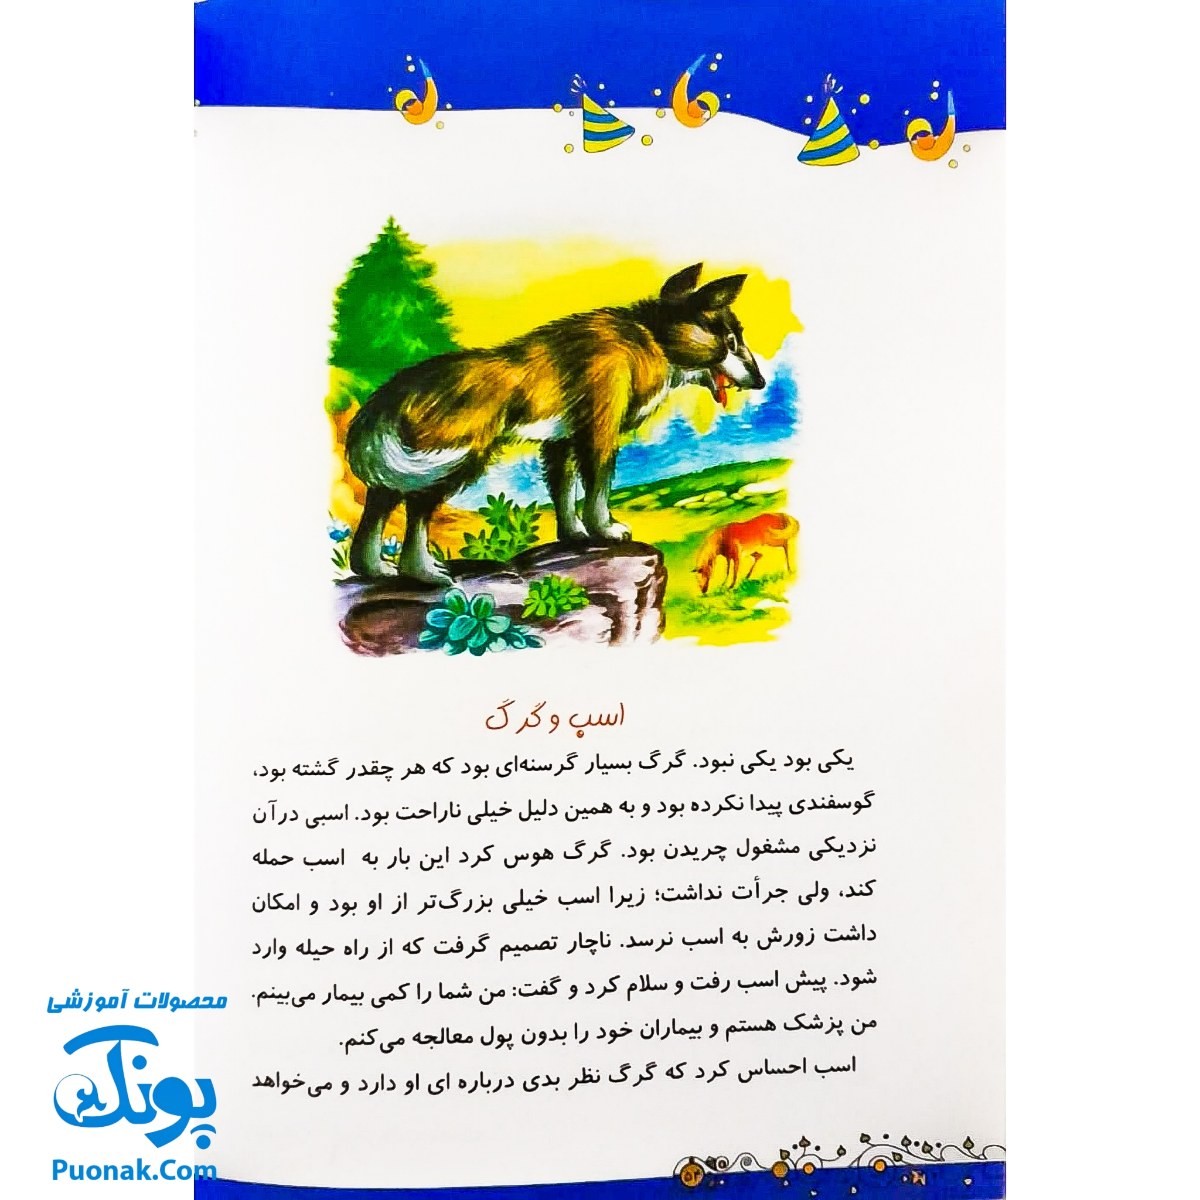 اسب و گرگ
یکی بود یکی نبود. گرگ بسیار گرسنه‌ای بود که هر چقدر گشته بود،
گوسفندی پیدا نکرده بود و به همین دلیل خیلی ناراحت بود. اسبی درآن
نزدیکی مشغول چریدن بود. گرگ هوس کرد این بار به اسب حمله
کند، ولی جرأت نداشت؛ زیرا اسب خیلی بزرگ‌تر از او بود و امکان
داشت زورش به اسب نرسد. ناچار تصمیم گرفت که از راه حیله وارد
شود. پیش اسب رفت و سلام کرد و گفت: من شما را کمی بیمار می‌بینم.
من پزشک هستم و بیماران خود را بدون پول معالجه می‌کنم.
اسب احساس کرد که گرگ نظر بدی درباره ای او دارد و می‌خواهد
محصولات آموزشی
پونک
Puonak.Com